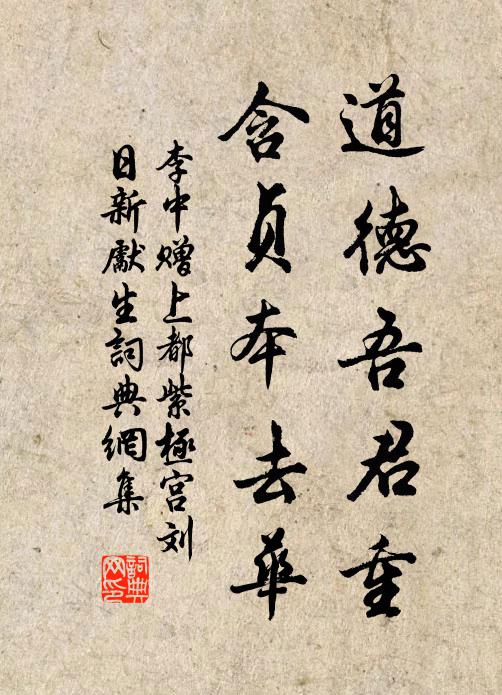 道德吾君重
含貞本去華
李中赠上都紫極宫刘
日新獻生詞典網集
詞典網印